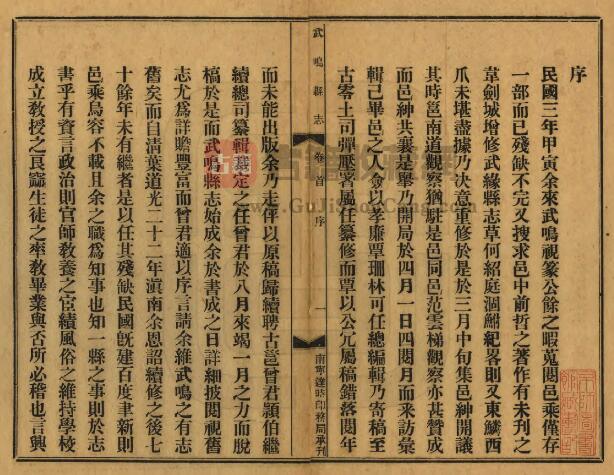 序
民國三年甲寅余來武鳴視篆公餘之暇蒐閱邑乘僅存
一部而已殘缺不完又搜求邑中前哲之著作有未刊之
韋劍城增修武緣縣志草何紹庭涸鮒紀畧則又東鱗西
爪未堪盡據乃決意重修於是於三月中旬集邑紳開議
其時邕南道觀察猶駐是邑同邑范雲梯觀察亦甚贊成
而邑紳共襄是舉乃開局於四月一日四閱月而來訪彙
輯已畢邑之人僉以孝廉覃珊林可任總編輯乃寄稿至
古零土司彈壓署屬任纂修而覃以公冗屬稿錯落閱年
武鳴縣志
卷首 序
一
南寧達時印務局承刊
而未能出版余乃走伻以原稿歸續聘古邕曾君穎伯繼
續總司纂輯裁定之任曾君於八月來竭一月之力而脫
稿於是而武鳴縣志始成余於書成之日詳細披閱視舊
志尤爲詳贍豐富而曾君適以序言請余維武鳴之有志
舊矣而自清葉道光二十二年滇南余恩詔續修之後七
十餘年未有繼者是以任其殘缺民國旣建百度聿新則
邑乘烏容不載且余之職爲知事也知一縣之事則於志
書乎有資言政治則官師敎養之宦績風俗之維持學校
成立敎授之良窳生徒之率敎畢業與否所必稽也言興
www.GuJi.Com